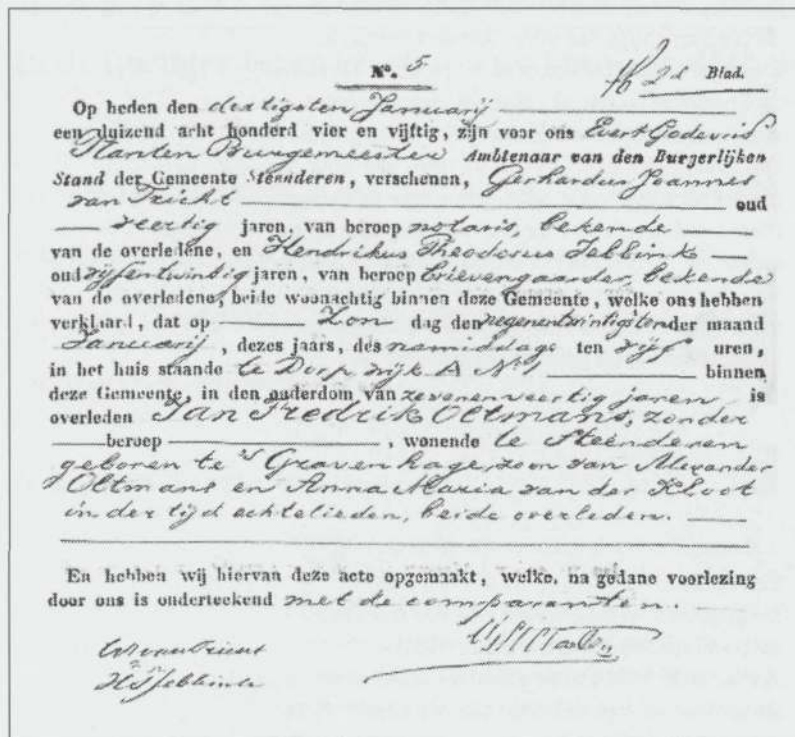 N°. 5
2e Blad.
Op heden den dertigsten Januarij
een duizend acht honderd vier en vijftig, zijn voor ons Evert Godevrid
Planten Burgemeester Ambtenaar van den Burgerlijken
Stand der Gemeente Steenderen, verschenen, Gerhardus Joannes
van Tricht oud
veertig jaren, van beroep notaris, bekende
van de overledene, en Hendrikus Theodorus Jebbink
oud vijfentwintig jaren, van beroep brievengaarder, bekende
van de overledene, beide woonachtig binnen deze Gemeente, welke ons hebben
verklaard, dat op Zon dag den negenentwintigsten der maand
Januarij, dezes jaars, des namiddags ten vijf uren,
in het huis staande te Dorp wijk A N°1 binnen
deze Gemeente, in den ouderdom van zevenenveertig jaren is
overleden Jan Fredrik Oltmans, zonder
beroep, wonende te Steenderen
geboren te 's Gravenhage, zoon van Alexander
Oltmans en Anna Maria van der Kloot
in der tijd echtelieden, beide overleden.
En hebben wij hiervan deze acte opgemaakt, welke, na gedane voorlezing
door ons is onderteekend met de comparanten.
van Tricht
H T Jebbink